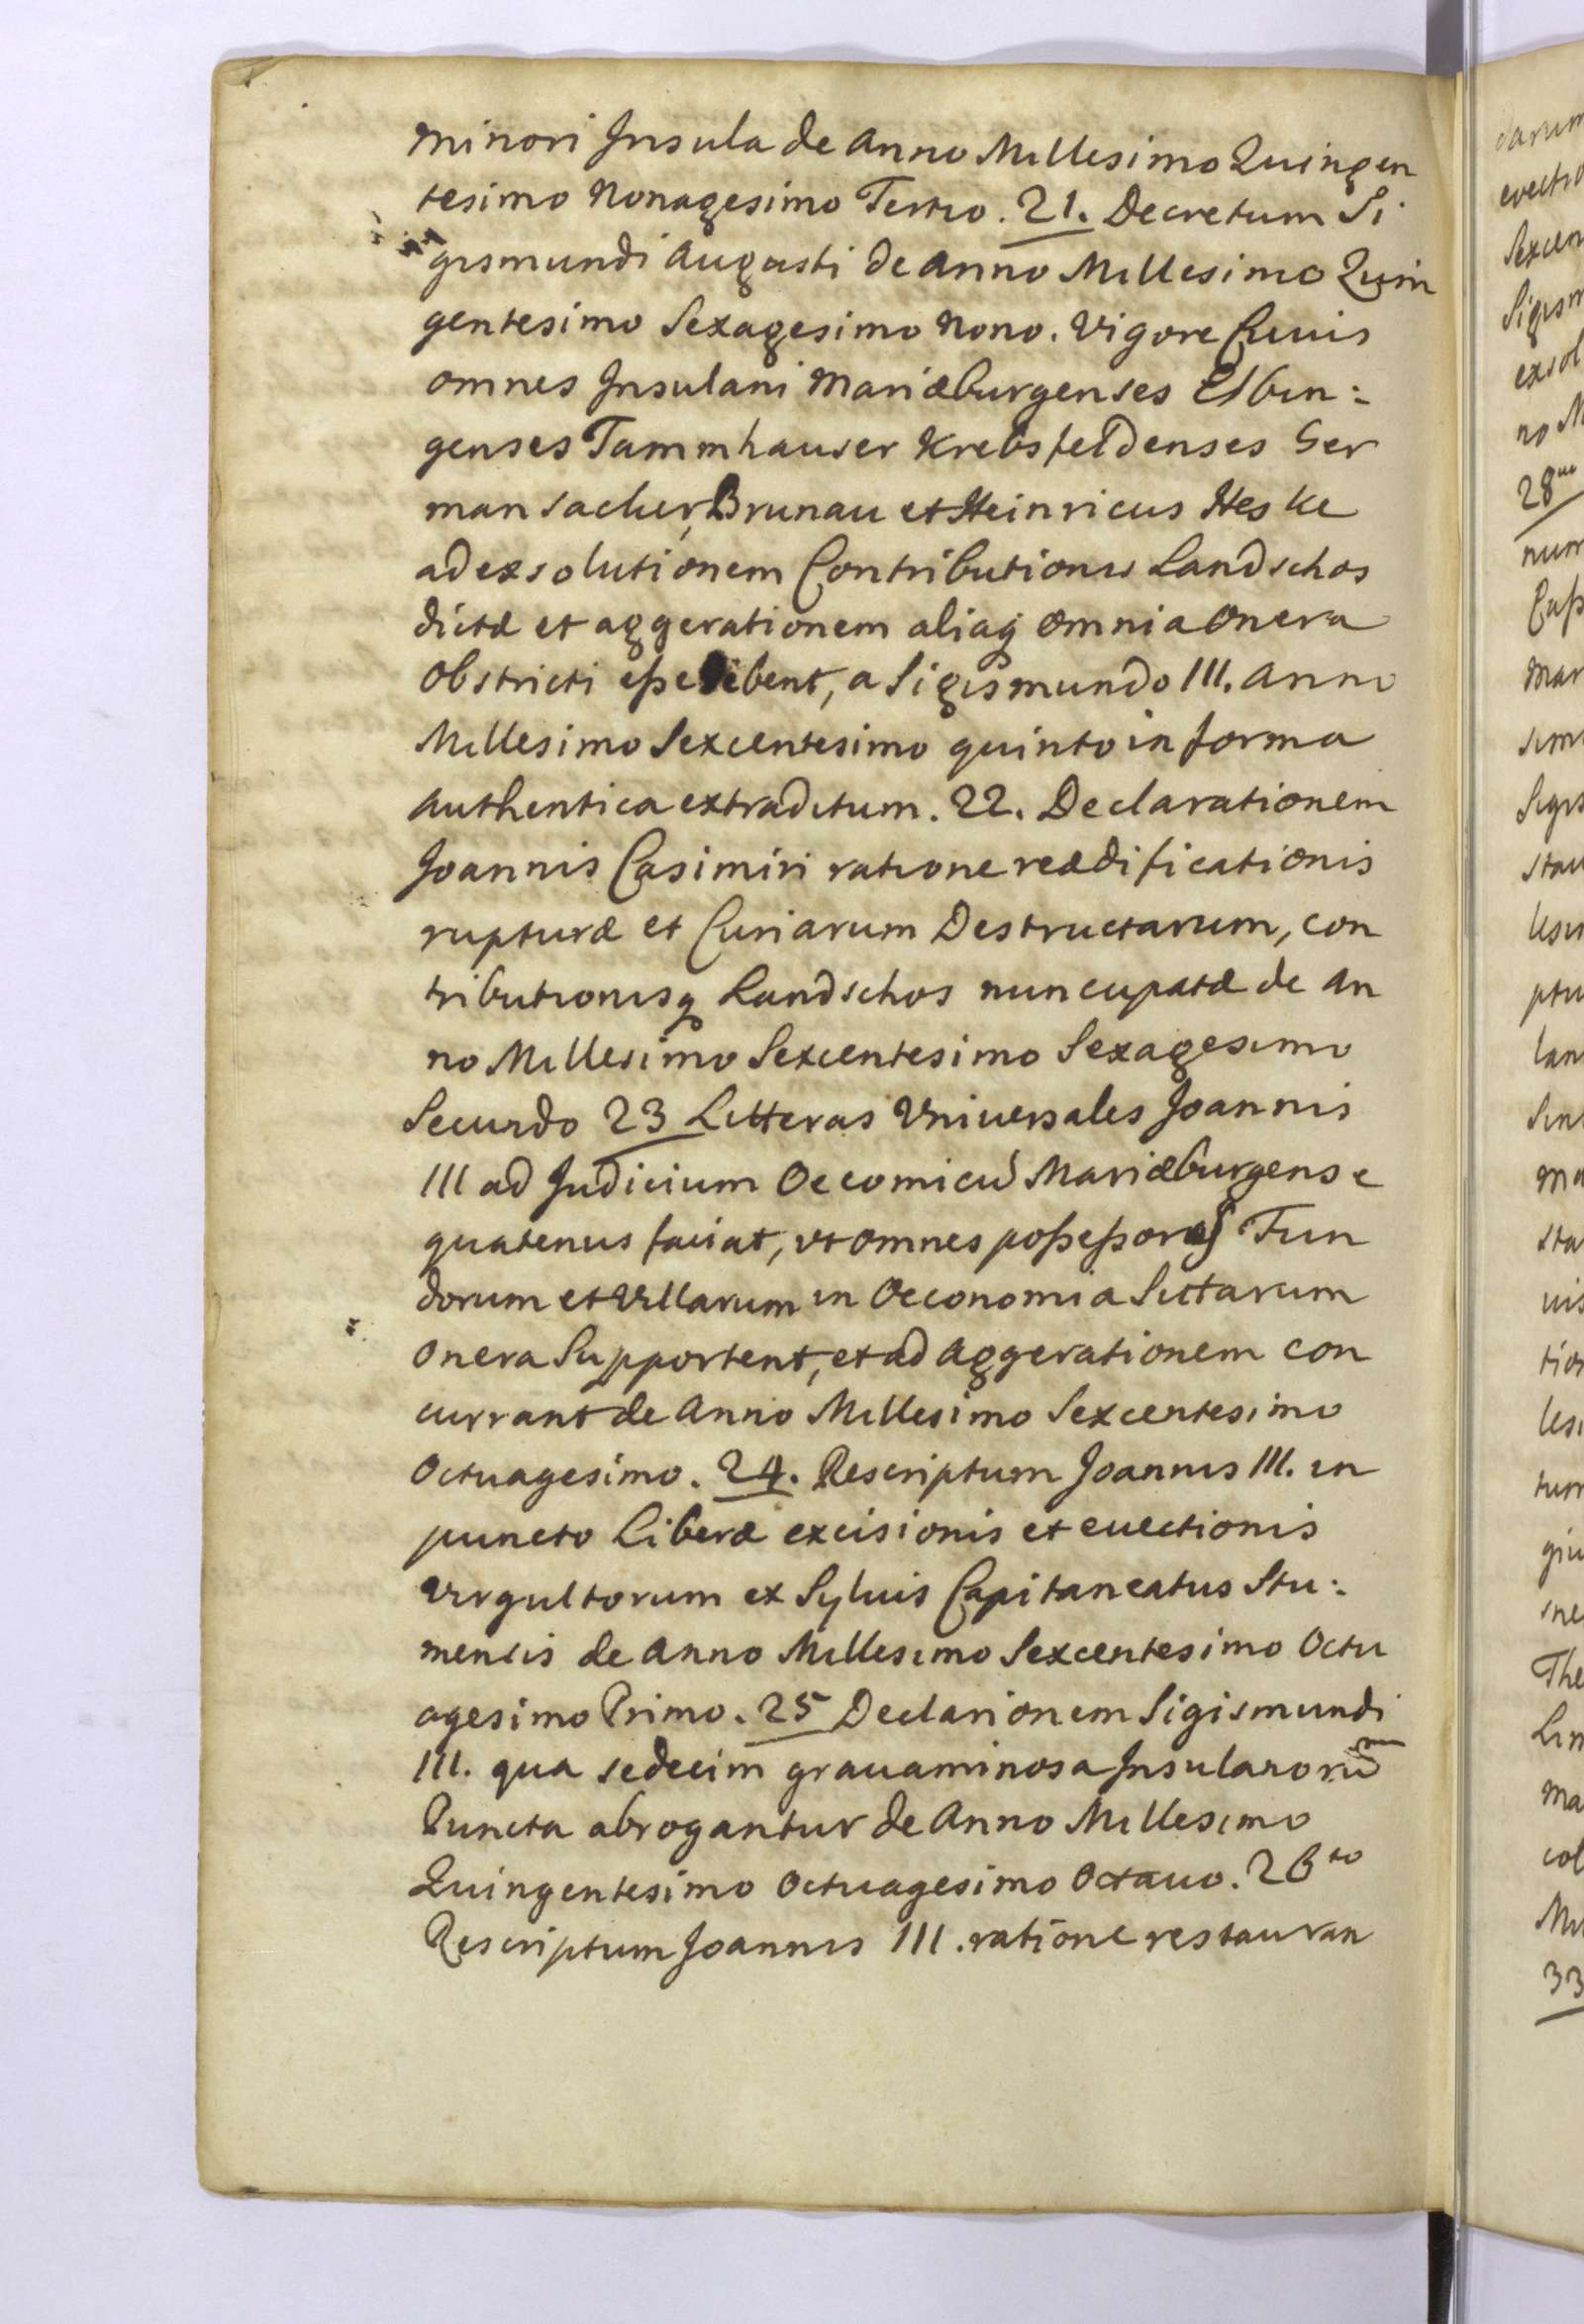 minori Insula de Anno Millesimo Quingen
tesimo Nonagesimo Tertio. 21. Decretum Si
gismundi Augusti de Anno Millesimo Quin
gentesimo Sexagesimo Nono. Vigore Cuius
omnes Insulani Mariæburgenses Elbin:
genses Tammhauser Krebsfeldenses Ger
man sacher, Brunau et Heinricus Heske
ad exsolutionem Contributionis Landschos
dictæ et aggerationem aliaq omnia Onera
Obstricti eße debent, a Sigismundo III. Anno
Millesimo Sexcentesimo quinto in forma
Authentica extraditum. 22. Declarationem
Joannis Casimiri ratione reædificationis
rupturæ et Curiarum Destructarum, con
tributionisq Landschos nuncupatæ de An
no Millesimo Sexcentesimo Sexagesimo
Secundo 23 Litteras Vniuersales Joannis
III ad Judicium Oecomicu Mariæburgense
quatenus faciat, vt omnes poßeßores Fun
dorum et Villarum in Oeconomia Sittarum
Onera Supportent, et ad Aggerationem con
currant de Anno Millesimo Sexcentesimo
Octuagesimo. 24. Rescriptum Joannis III. in
puncto Liberæ excisionis et euectionis
Virgultorum ex Syluis Capitaneatus Stu:
mensis de Anno Millesimo Sexcentesimo Octu
agesimo Primo. 25 Declarionem Sigismundi
III. qua sedecim grauaminosa Insulanorũ
Puncta abrogantur de Anno Millesimo
Quingentesimo Octuagesimo Octauo. 26to
Rescriptum Joannis III. ratione restauran